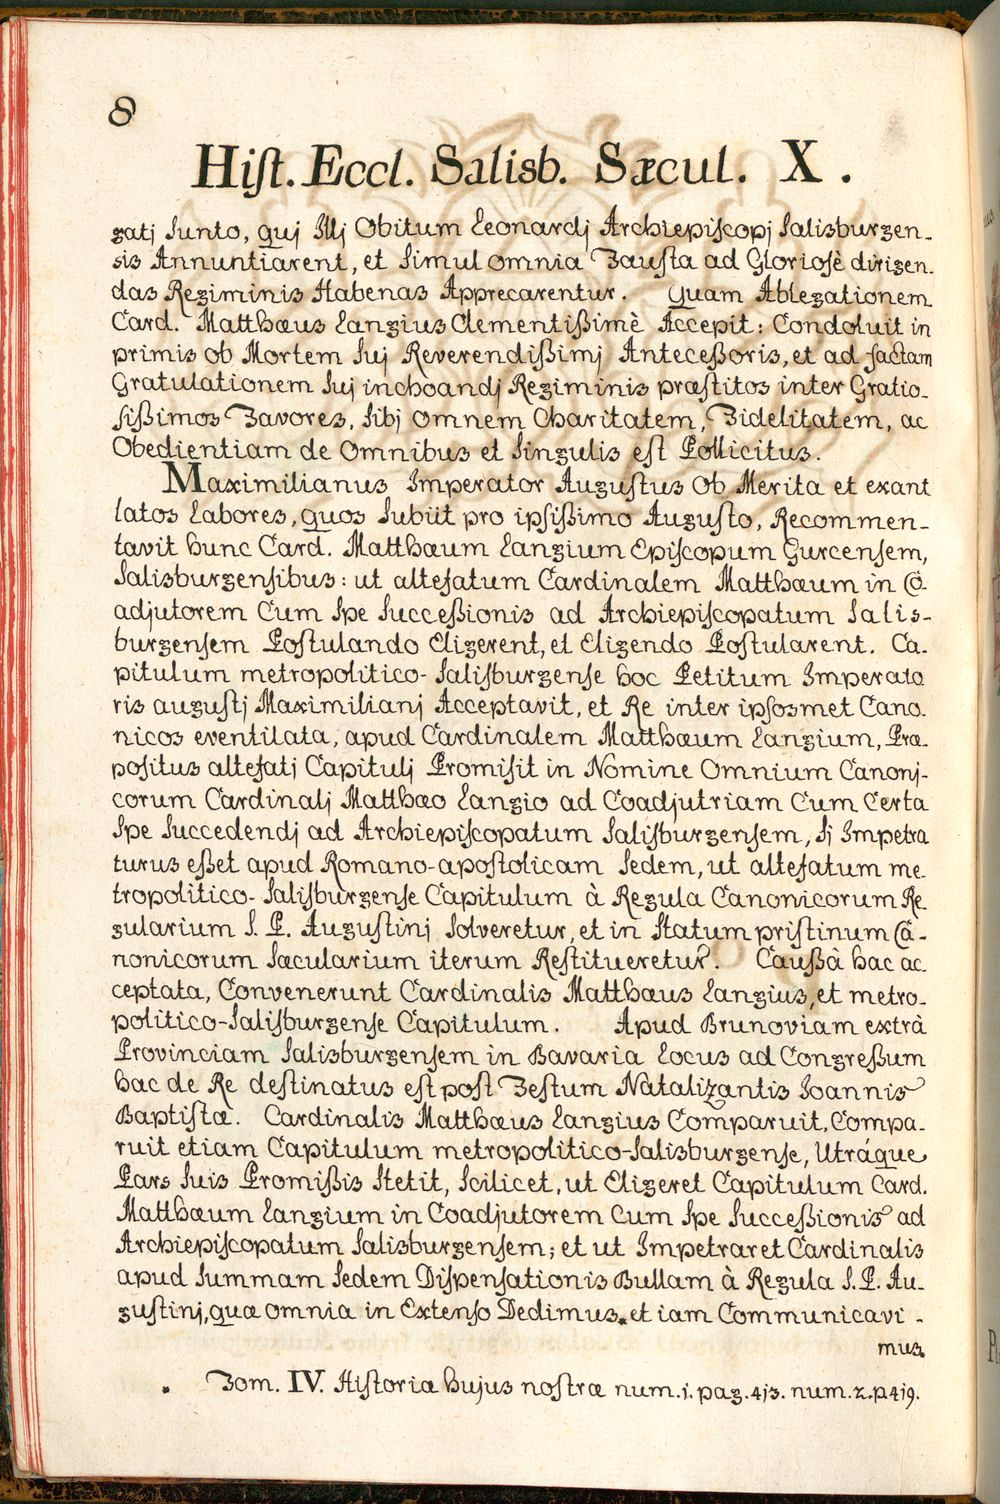 8
Hist. Eccl. Salisb. Sæcul. X.
gatj sunto, quj Illj Obitum Leonardj Archiepiscopj Salisburgen-
sis Annuntiarent, et simul omnia Fausta ad Gloriosè dirigen-
das Regiminis Habenas Apprecarentur. Quam Ablegationem
Card. Matthæus Langius Clementißimè Accepit: Condoluit in
primis ob Mortem suj Reverendißimj Anteceßoris, et ad factam
Gratulationem suj inchoandj Regiminis præstitos inter Gratio-
sißimos Favores, sibj omnem Charitatem, Fidelitatem, ac
Obedientiam de Omnibus et singulis est Pollicitus.
Maximilianus Imperator Augustus Ob Merita et exant
latos Labores, quos subiit pro ipsißimo Augusto, Recommen-
tavit hunc Card. Matthæum Langium Episcopum Gurcensem,
Salisburgensibus: ut altefatum Cardinalem Matthæum in Co-
adjutorem Cum spe succeßionis ad Archiepiscopatum Salis-
burgensem Postulando Eligerent, et Eligendo Postularent. Ca-
pitulum metropolitico-Salisburgense hoc Petitum Imperato
ris augustj Maximilianj Acceptavit, et Re inter ipsosmet Cano-
nicos eventilata, apud Cardinalem Matthæum Langium, Præ-
positus altefatj Capitulj Promisit in Nomine Omnium Canonj-
corum Cardinalj Matthæo Langio ad Coadjutriam Cum Certa
spe succedendj ad Archiepiscopatum Salisburgensem, sj Impetra
turus eßet apud Romano-apostolicam sedem, ut altefatum me-
tropolitico-Salisburgense Capitulum à Regula Canonicorum Re-
gularium S. P. Augustinj solveretur, et in statum pristinum Ca-
nonicorum sæcularium iterum Restitueretur. Caußâ hac ac-
ceptata, Convenerunt Cardinalis Matthæus Langius, et metro-
politico-Salisburgense Capitulum. Apud Brunoviam extrà
Provinciam Salisburgensem in Bavaria Locus ad Congreßum
hac de Re destinatus est post Festum Natalizantis Ioannis
Baptistæ. Cardinalis Matthæus Langius Comparuit, Compa-
ruit etiam Capitulum metropolitico-Salisburgense, Utráque
Pars suis Promißis stetit, scilicet, ut Eligeret Capitulum Card.
Matthæum Langium in Coadjutorem Cum spe succeßionis ad
Archiepiscopatum Salisburgensem; et ut Impetraret Cardinalis
apud summam sedem Dispensationis Bullam à Regula S. P. Au-
gustinj, quæ omnia in Extenso Dedimus* et iam Communicavi-
mus.
* Tom. IV. Historiæ hujus nostræ num. 1. pag. 413. num. 2. p 419.